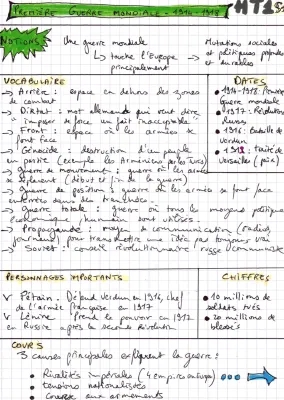 PREMIÈRE GUERRE MONDIALE : 1914-1918
HT1
NOTIONS
Une guerre mondiale
↳ touche l'Europe
principalement
Mutations sociales
et politiques profondes
et durables
VOCABULAIRE
→ Arrière : espace en dehors des zones
de combat
→ Diktat : mot allemand qui veut dire
imposer de force un fait inacceptable
→ Front : espace où les armées se
font face
→ Génocide : destruction d'un peuple
en partie (exemple les Arméniens par les Turcs)
→ guerre de mouvement : guerre où les armées
se déplacent (début et fin de la guerre)
→ guerre de position : guerre où les armées se font face
enterrées dans des tranchées
→ guerre totale : guerre où tous les moyens politiques
économique humain sont utilisés.
→ Propagande : moyen de communication (radio,
journaux) pour transmettre une idée pas toujours vrai
→ Soviet : conseil révolutionnaire russe communiste
DATES
• 1914-1918 : Première
Guerre mondiale
• 1917 : Révolution
Russe
• 1916 : bataille de
verdun
• 1919 : traité de
versailles (paix)
PERSONNAGES IMPORTANTS
V Pétain : Défend verdun en 1916, chef
de l'armée française en 1917
V Lénine : Prend le pouvoir en 1917
en Russie après la seconde révolution
CHIFFRES
• 10 millions de
soldats tués
• 20 millions de
blessés
COURS
3 causes principales expliquent la guerre :
• Rivalités impériales (4 empires en Europe)
• tensions nationalistes
• course aux armements